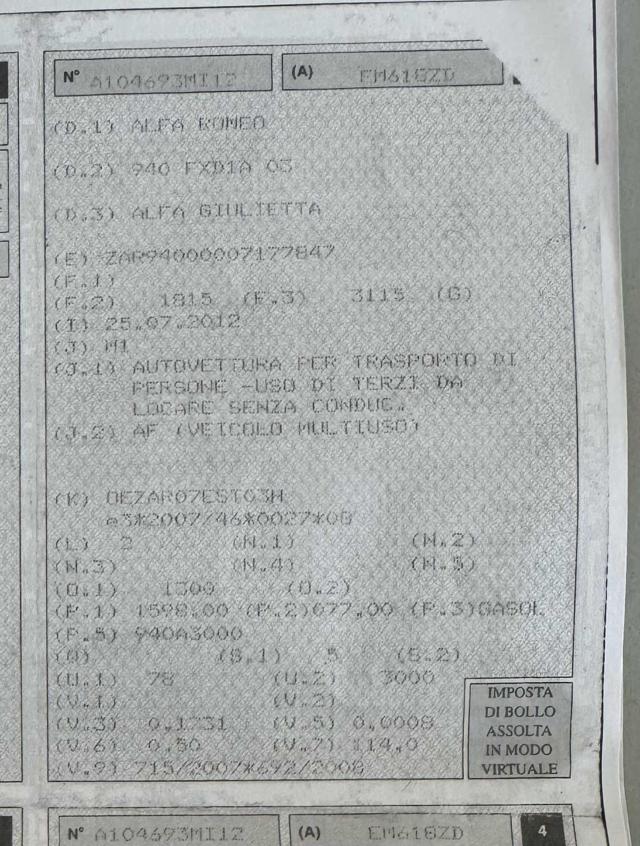 N° A104693MI12 (A) EM618ZD
(D.1) ALFA ROMEO
(D.2) 940 FXD1A 03
(D.3) ALFA GIULIETTA
(E) ZAR94000007177847
(F.1)
(F.2) 1815 (F.3) 3115 (G)
(I) 25.07.2012
(J) M1
(J.1) AUTOVETTURA PER TRASPORTO DI
PERSONE -USO DI TERZI DA
LOCARE SENZA CONDUC.
(J.2) AF (VEICOLO MULTIUSO)
(K) OEZAR07EST03H
e3*2007/46*0027*08
(L) 2 (N.1) (N.2)
(N.3) (N.4) (N.5)
(O.1) 1300 (O.2)
(P.1) 1598,00 (P.2)077,00 (P.3)GASOL
(P.5) 940A3000
(Q) (S.1) 5 (S.2)
(U.1) 78 (U.2) 3000
(V.1) (V.2)
(V.3) 0,1731 (V.5) 0,0008
(V.6) 0,50 (V.7) 114,0
(V.9) 715/2007*692/2008
IMPOSTA
DI BOLLO
ASSOLTA
IN MODO
VIRTUALE
N° A104693MI12 (A) EM618ZD 4